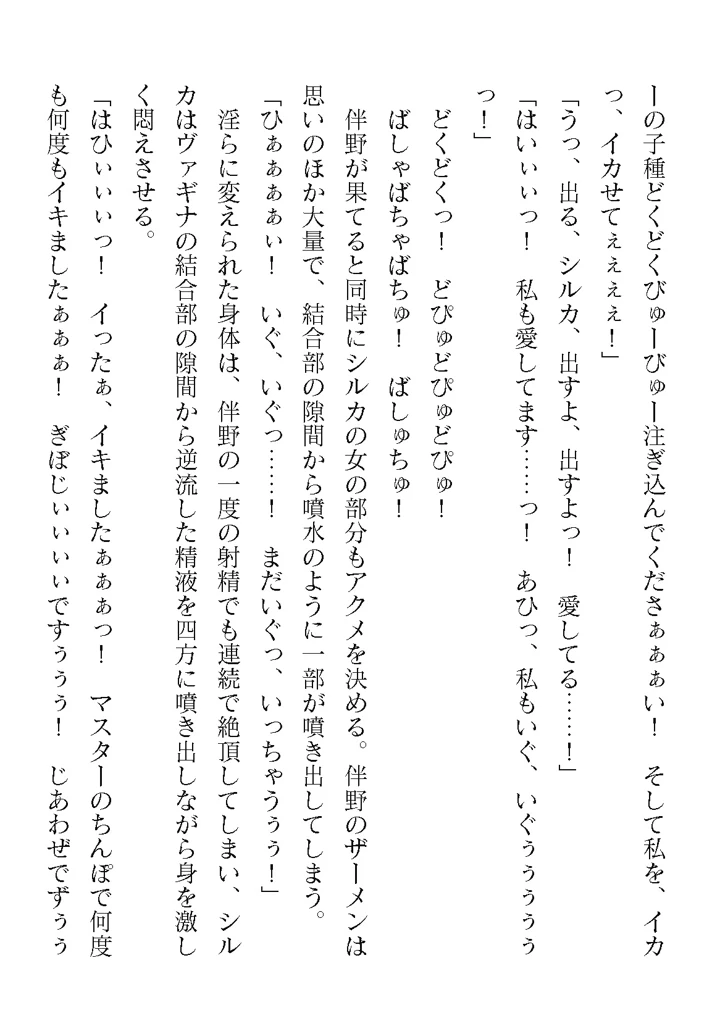 ーの子種どくどくびゅーびゅー注ぎ込んでくださぁぁぁい！　そして私を、イカ
っ、イカせてぇぇぇぇ！」
「うっ、出る、シルカ、出すよ、出すよっ！　愛してる……！」
「はいぃぃっ！　私も愛してます……っ！　あひっ、私もいぐ、いぐぅぅぅぅぅ
っ！」
　どくどくっ！　どぴゅどぴゅどぴゅ！
　ばしゃばちゃばちゅ！　ばしゅちゅ！
　伴野が果てると同時にシルカの女の部分もアクメを決める。伴野のザーメンは
思いのほか大量で、結合部の隙間から噴水のように一部が噴き出してしまう。
「ひぁぁぁぁぃ！　いぐ、いぐっ……！　まだいぐっ、いっちゃうぅぅ！」
　淫らに変えられた身体は、伴野の一度の射精でも連続で絶頂してしまい、シル
カはヴァギナの結合部の隙間から逆流した精液を四方に噴き出しながら身を激し
く悶えさせる。
「はひぃぃぃっ！　イったぁ、イキましたぁぁぁっ！　マスターのちんぽで何度
も何度もイキましたぁぁぁ！　ぎぼじぃぃぃぃですぅぅぅ！　じあわぜでずぅぅ